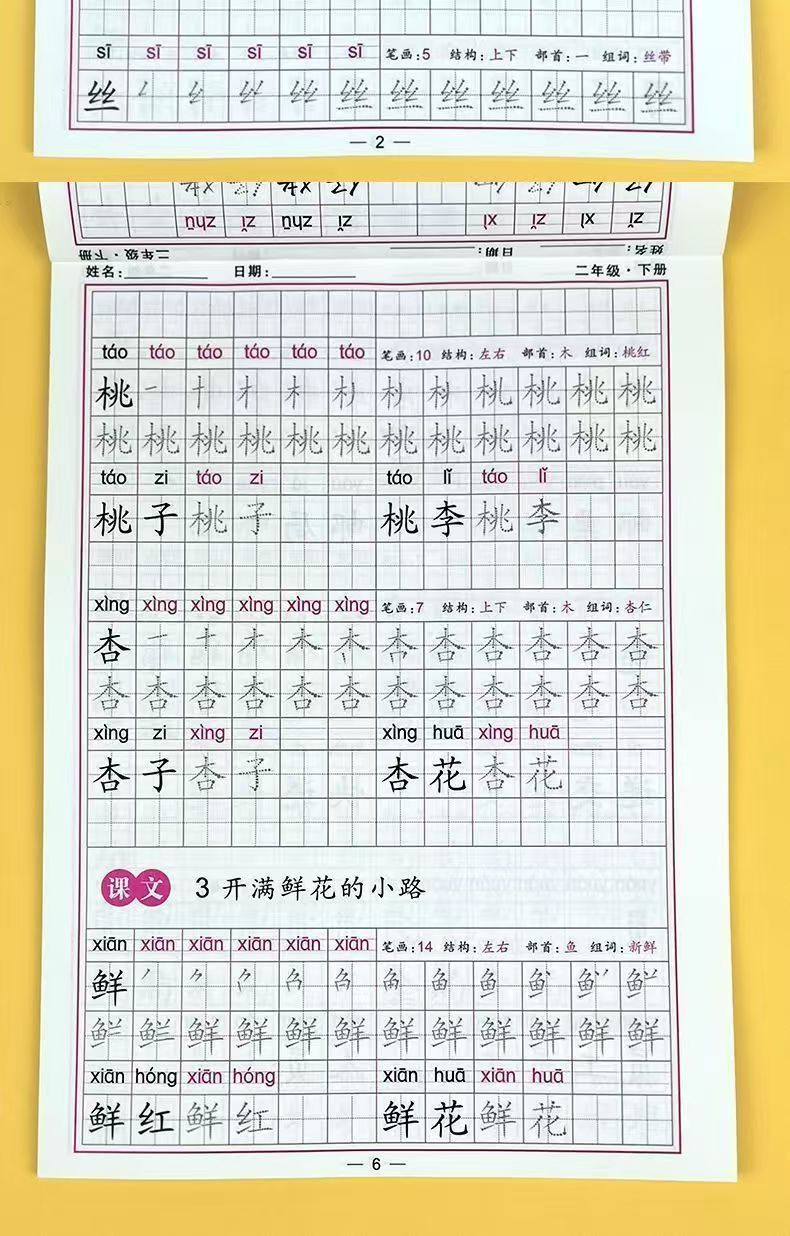 sī sī sī sī sī sī 笔画:5 结构:上下 部首:一 组词:丝带
丝 丝 丝 丝 丝 丝 丝 丝
— 2 —
zhū zǐ zhū zǐ xì zǐ xì zǐ
姓名: 日期: 二年级·下册
姓名: 日期: 二年级·下册
táo táo táo táo táo táo 笔画:10 结构:左右 部首:木 组词:桃红
桃 一 十 才 木 桃 桃 桃
桃 桃 桃 桃 桃 桃 桃 桃 桃 桃 桃 桃
táo zi táo zi táo lǐ táo lǐ
桃 子 桃 子 桃 李 桃 李
xìng xìng xìng xìng xìng xìng 笔画:7 结构:上下 部首:木 组词:杏仁
杏 一 十 才 木 杏 杏 杏 杏
杏 杏 杏 杏 杏 杏 杏 杏 杏 杏 杏 杏
xìng zi xìng zi xìng huā xìng huā
杏 子 杏 子 杏 花 杏 花
课文 3 开满鲜花的小路
xiān xiān xiān xiān xiān xiān 笔画:14 结构:左右 部首:鱼 组词:新鲜
鲜
鲜 鲜 鲜 鲜 鲜 鲜 鲜 鲜 鲜 鲜
xiān hóng xiān hóng xiān huā xiān huā
鲜 红 鲜 红 鲜 花 鲜 花
— 6 —